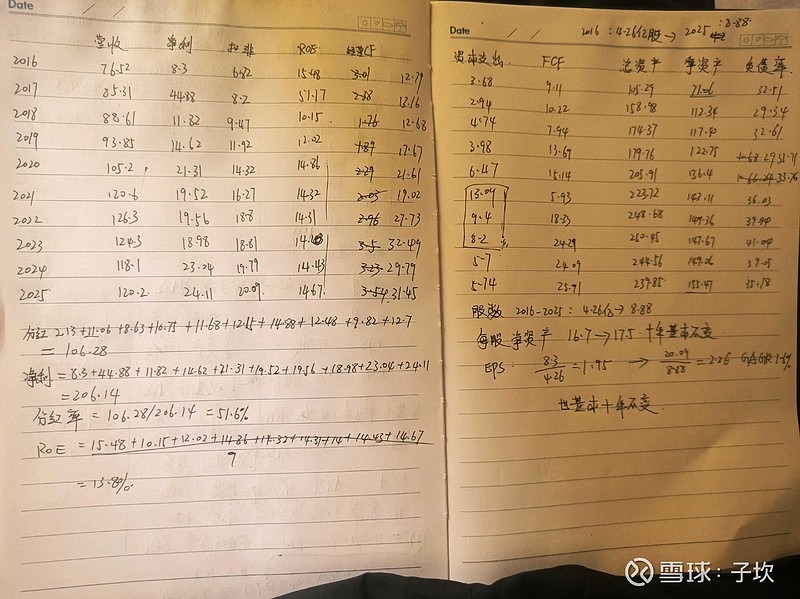 Date
营收 净利 扣非 ROE 经营CF
2016 76.52 8.3 6.82 15.48 12.79
2017 85.31 44.88 8.2 51.17 13.16
2018 88.61 11.82 9.47 10.15 1.76 12.68
2019 93.85 14.62 11.92 12.02 1.89 17.67
2020 105.2 21.31 14.32 14.86 2.29 21.61
2021 120.6 19.52 16.27 14.32 2.05 19.02
2022 126.3 19.56 18.8 14.31 2.96 27.73
2023 124.3 18.98 18.81 3.5 32.49
2024 118.1 23.04 19.79 14.43 3.23 29.79
2025 120.2 24.11 20.09 14.67 3.54 31.45
分红 2.13+11.06+8.63+10.75+11.68+12.15+14.88+12.48+9.82+12.7
=106.28
净利=8.3+44.88+11.82+14.62+21.31+19.52+19.56+18.98+23.04+24.11
=206.14
分红率=106.28/206.14=51.6%
ROE=15.48+10.15+12.02+14.86+14.32+14.31+14+14.43+14.67
9
=13.8%
Date
2016:4.26亿股→2025 :8.88
资本支出 FCF 总资产 净资产 负债率
3.68 9.11 105.29 71.06 32.51
2.94 10.22 158.98 112.34 29.34
4.74 7.94 174.37 117.50 32.61
3.98 13.69 179.76 122.75 31.71
6.47 15.14 205.91 136.4 33.76
13.09 5.93 223.72 143.11 36.03
9.4 18.33 248.68 149.36 39.94
8.2 24.29 250.45 147.67 41.04
5.7 24.09 244.56 149.06 39.05
5.74 25.71 239.85 155.47 35.18
股数 2016-2025:4.26亿→8.88
每股净资产 16.7→17.5 十年基本不变
EPS: 8.3/4.26=1.95 → 20.09/8.88=2.26
也基本十年不变
雪球：子坎